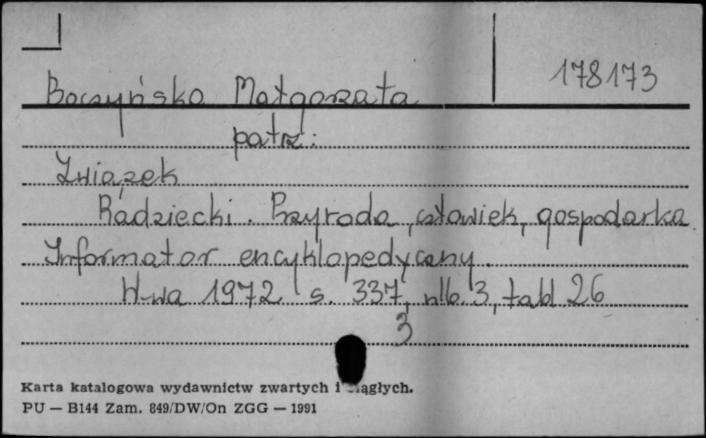 178173
Boczyńska Małgorzata
patrz:
Związek
Radziecki. Przyroda, człowiek, gospodarka.
Informator encyklopedyczny.
W-wa 1972 s. 337, nlb. 3, tabl 26
3
Karta katalogowa wydawnictw zwartych i ciągłych.
PU — B144 Zam. 849/DW/On ZGG — 1991